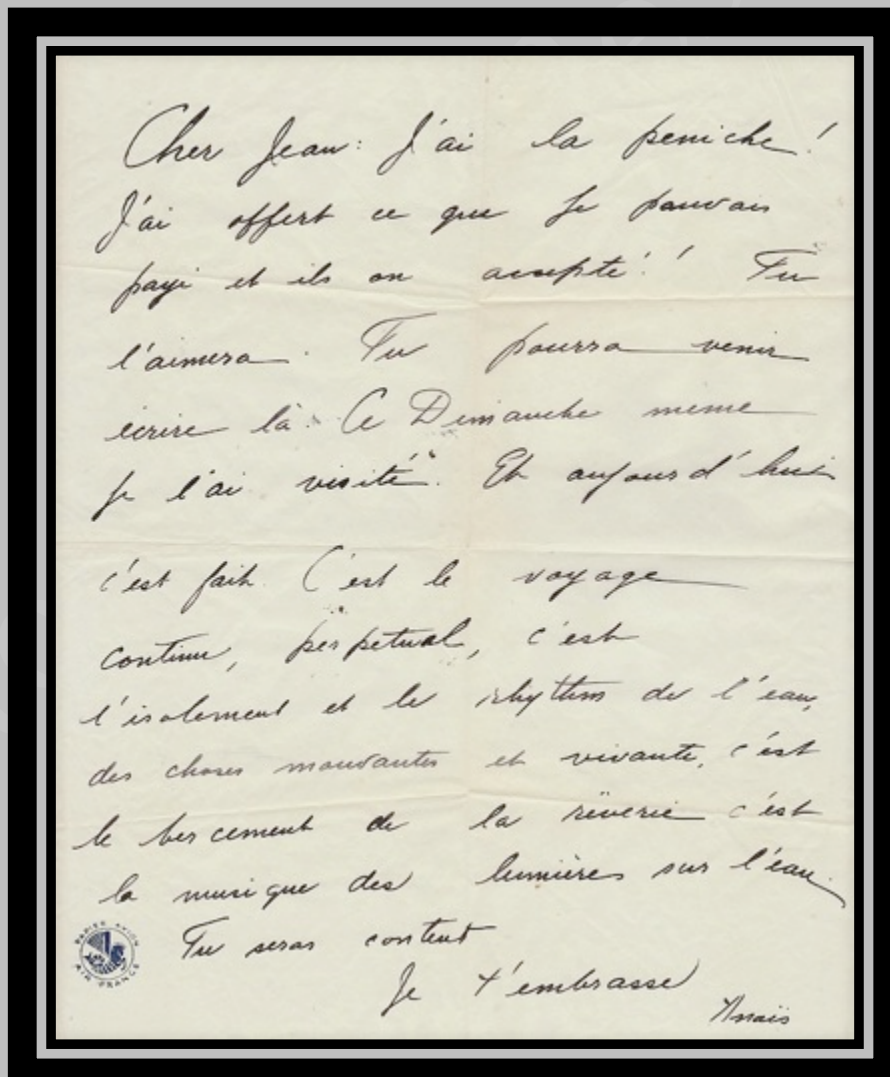 Cher Jean: J'ai la peniche!
J'ai offert ce que je pouvais
payé et ils on accepté! Tu
l'aimera. Tu pourra venir
écrire là. Ce Dimanche meme
je l'ai visité. Et aujourd'hui
c'est fait. C'est le voyage
continu, perpetual, c'est
l'isolement et le rhythm de l'eau,
des choses mouvantes et vivante, c'est
le bercement de la rêverie c'est
la musique des lumières sur l'eau.
Tu seras content
Je t'embrasse
Anaïs
PAPIER AVION
AIR FRANCE